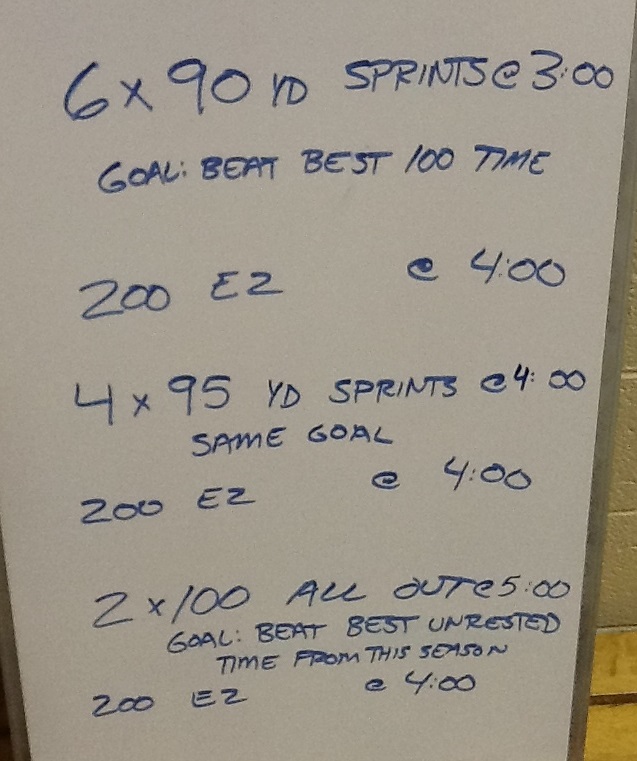 6 x 90 YD SPRINTS @ 3:00
GOAL: BEAT BEST 100 TIME
200 EZ @ 4:00
4 x 95 YD SPRINTS @ 4:00
SAME GOAL
200 EZ @ 4:00
2 x 100 ALL OUT @ 5:00
GOAL: BEAT BEST UNRESTED
TIME FROM THIS SEASON
200 EZ @ 4:00